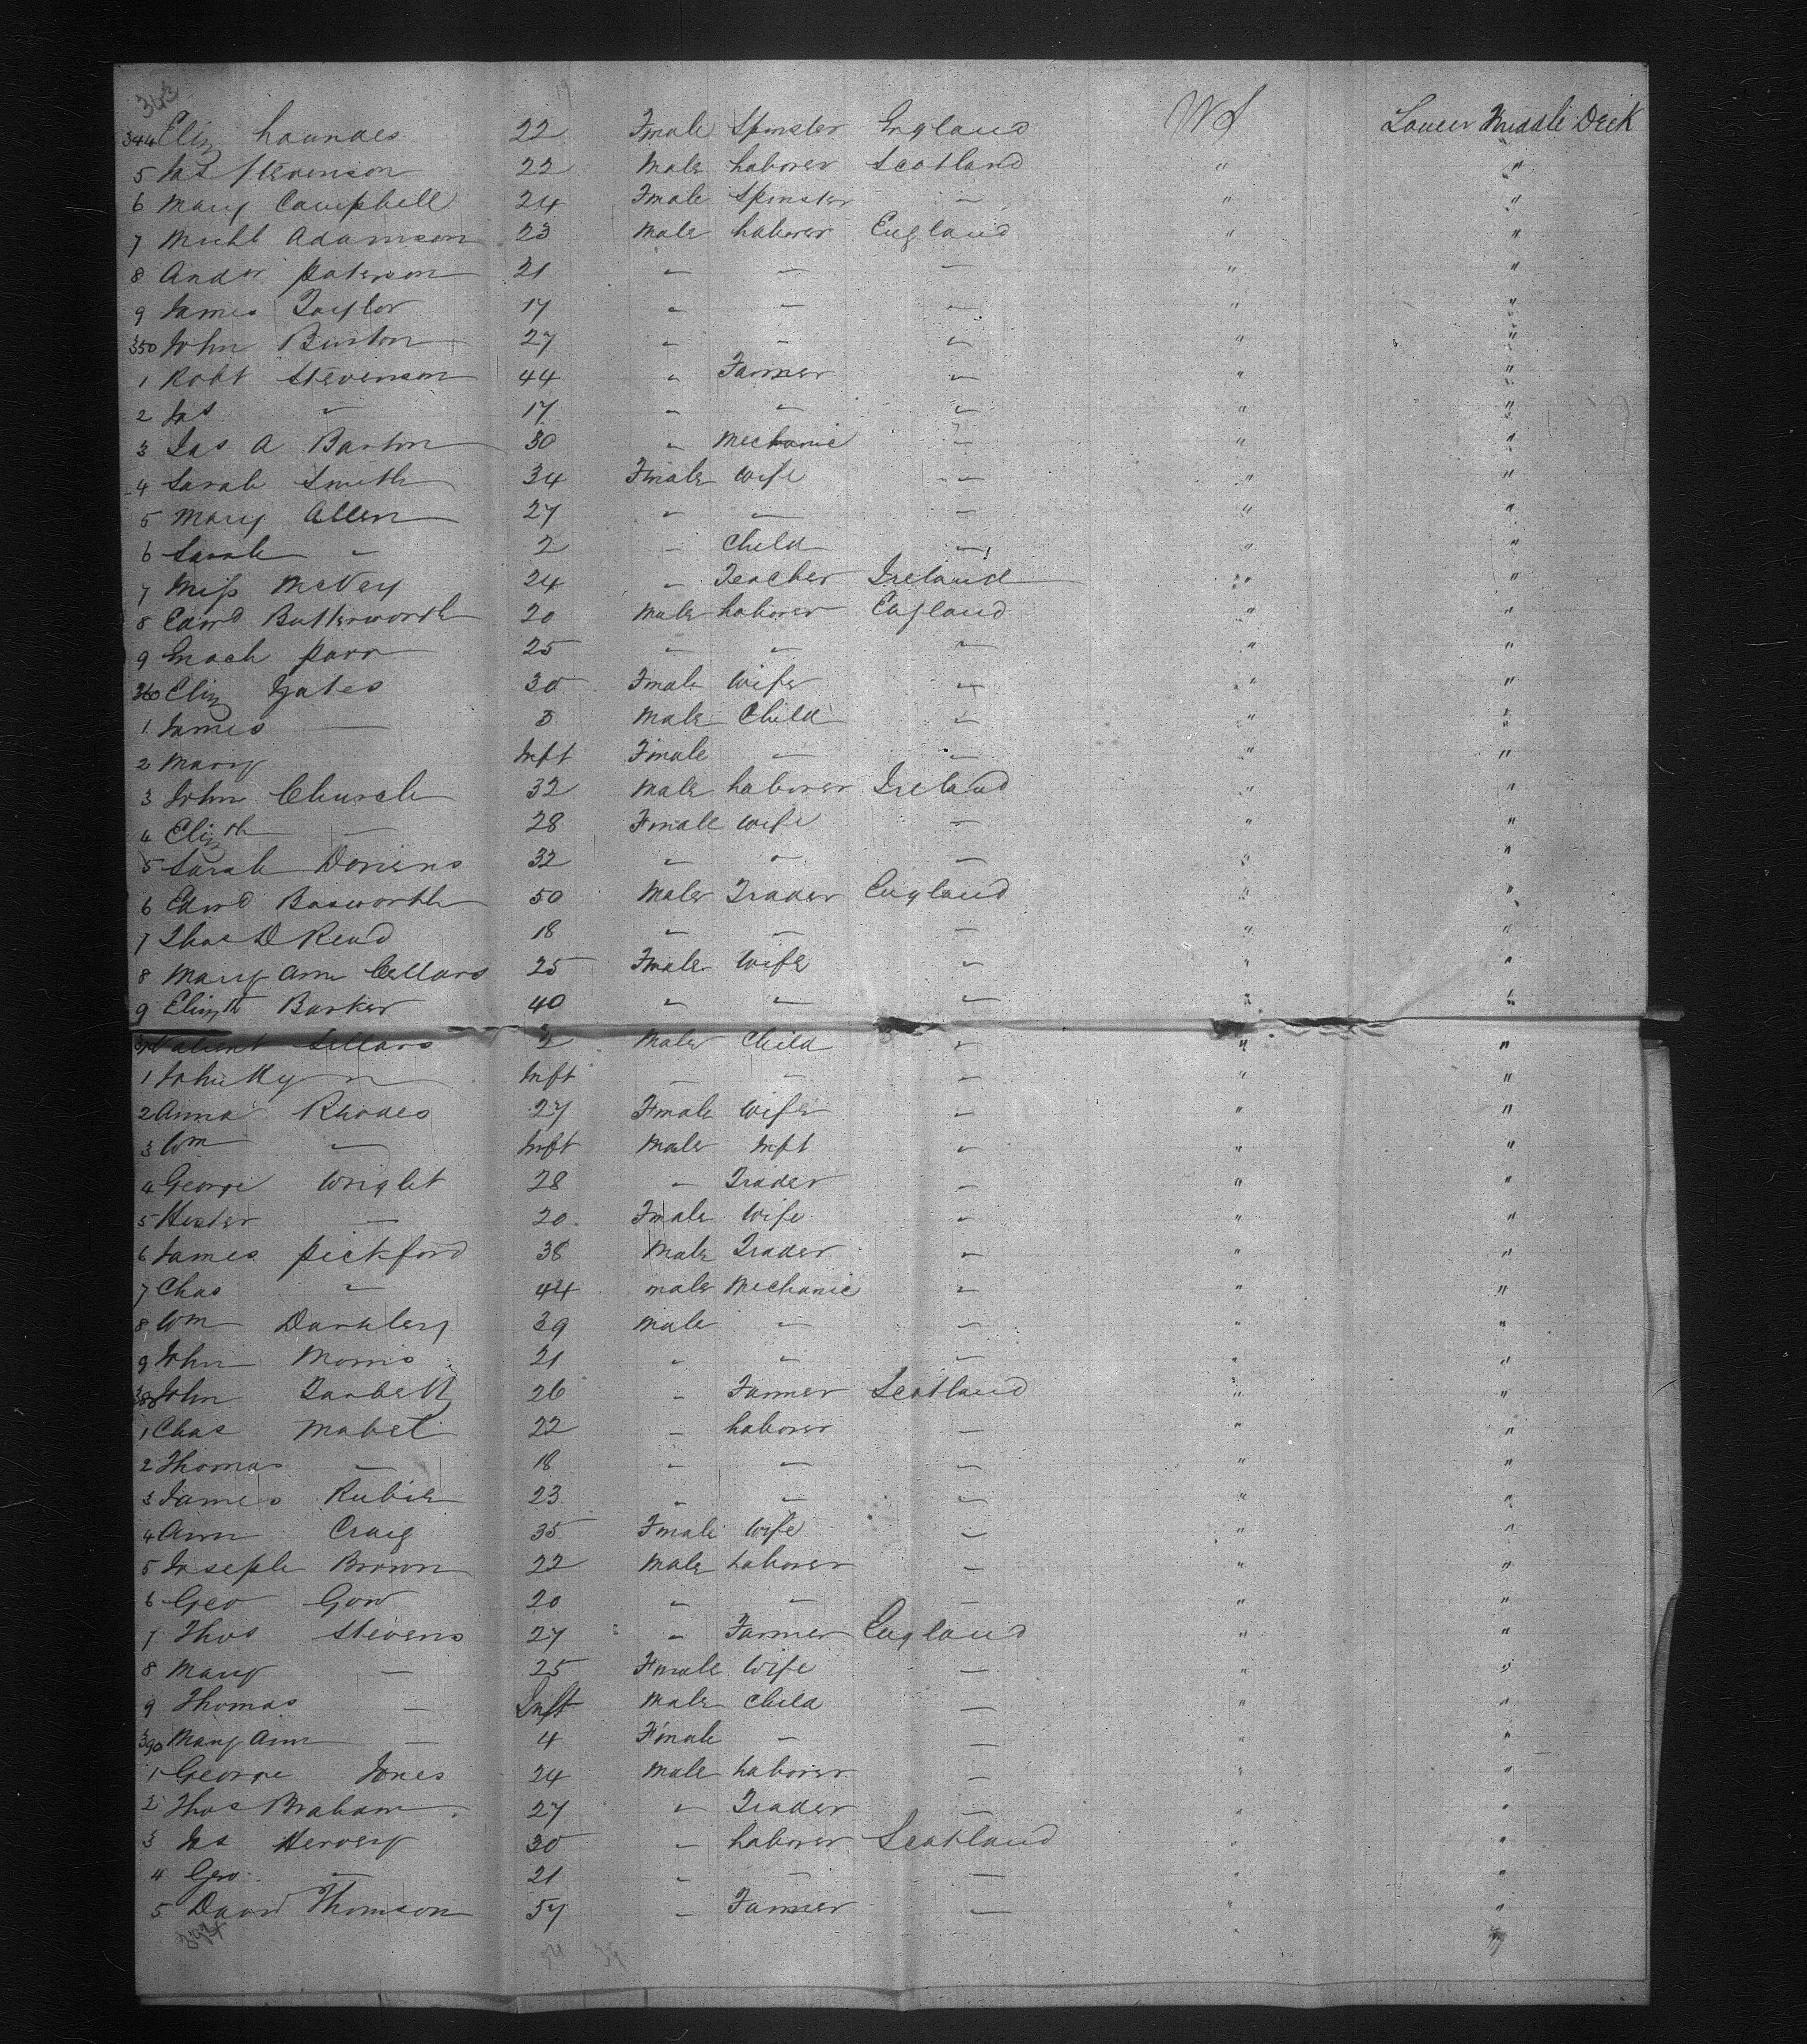 343
344 Eliz Lowndes 22 Fmale Spinster England US Lower Middle Deck
5 Jas Stevenson 22 Male Laborer Scotland " "
6 Mary Campbell 24 Fmale Spinster — " "
7 Michl Adamson 23 Male Laborer England " "
8 Andw Paterson 21 — — — " "
9 James Taylor 17 — — — " "
350 John Burton 27 — — — " "
1 Robt Stevenson 44 — Farmer — " "
2 Jas — 17 — — — " "
3 Jas A Barton 30 — Mechanic — " "
4 Sarah Smith 34 Fmale Wife — " "
5 Mary Allen 27 — — — " "
6 Sarah — 2 — Child — " "
7 Miss McVey 24 — Teacher Ireland " "
8 Edwd Butterworth 20 Male Laborer England " "
9 Enoch Parr 25 — — — " "
360 Eliz Yates 30 Fmale Wife — " "
1 James — 3 Male Child — " "
2 Mary Inft Fmale — — " "
3 John Church 32 Male Laborer Ireland " "
4 Elizth — 28 Fmale Wife — " "
5 Sarah 32 — — — " "
6 Edwd Bosworth 50 Male Trader England " "
7 Thos D Read 18 — — — " "
8 Mary Ann Cellars 25 Fmale Wife — " "
9 Elizth Barker 40 — — — " "
370 Sellars 2 Male Child — " "
1 — Inft — — — " "
2 Anna Rhodes 27 Fmale Wife — " "
3 Wm — Inft Male Inft — " "
4 George Wright 28 — Trader — " "
5 Hester — 20 Fmale Wife — " "
6 James Pickford 38 Male Trader — " "
7 Chas — 44 Male Mechanic — " "
8 Wm 39 Male — — " "
9 John Morris 21 — — — " "
380 John Tarbett 26 — Farmer Scotland " "
1 Chas Mabel 22 — Laborer — " "
2 Thomas — 18 — — — " "
3 James Rubie 23 — — — " "
4 Ann Craig 35 Fmale Wife — " "
5 Joseph Brown 22 Male Laborer — " "
6 Geo Gow 20 — — — " "
7 Thos Stevens 27 — Farmer England " "
8 Mary — 25 Fmale Wife — " "
9 Thomas — Inft Male Child — " "
390 Mary Ann — 4 Fmale — — " "
1 George Jones 24 Male Laborer — " "
2 Thos Braham 27 — Trader — " "
3 Jas Hervey 30 — Laborer Scotland " "
4 Geo — 21 — — — " "
5 David Thomson 57 — Farmer — " "
394